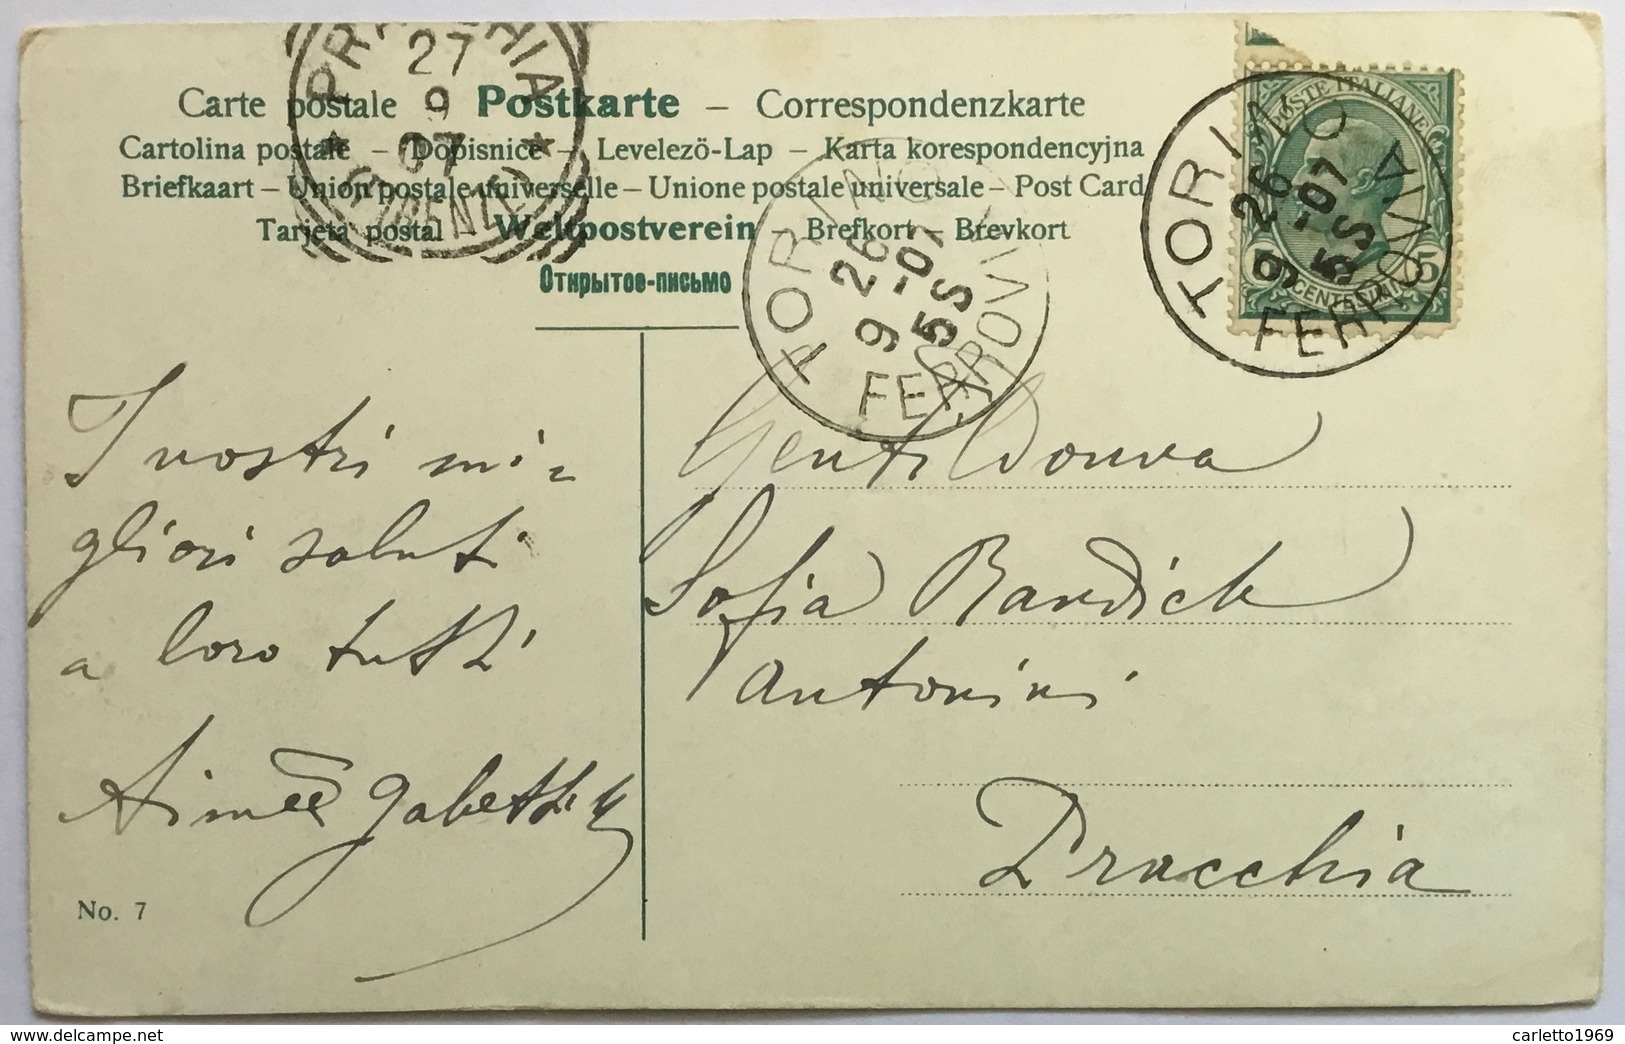 PRACCHIA
27
9
07
* FIRENZE *
Carte postale – Postkarte – Correspondenzkarte
Cartolina postale – Dopisnice – Levelezö-Lap – Karta korespondencyjna
Briefkaart – Union postale universelle – Unione postale universale – Post Card
Tarjeta postal – Weltpostverein – Brefkort – Brevkort
Открытое-письмо
TORINO
26
9 -07
5S
FERROVIA
POSTE ITALIANE
5 CENTESIMI 5
TORINO
26
9 -07
5S
FERROVIA
I nostri mi-
gliori saluti
a loro tutti
Aimée Gabetti
Gentil Donna
Sofia
Antonini
Pracchia
No. 7
delcampe.net
carletto1969